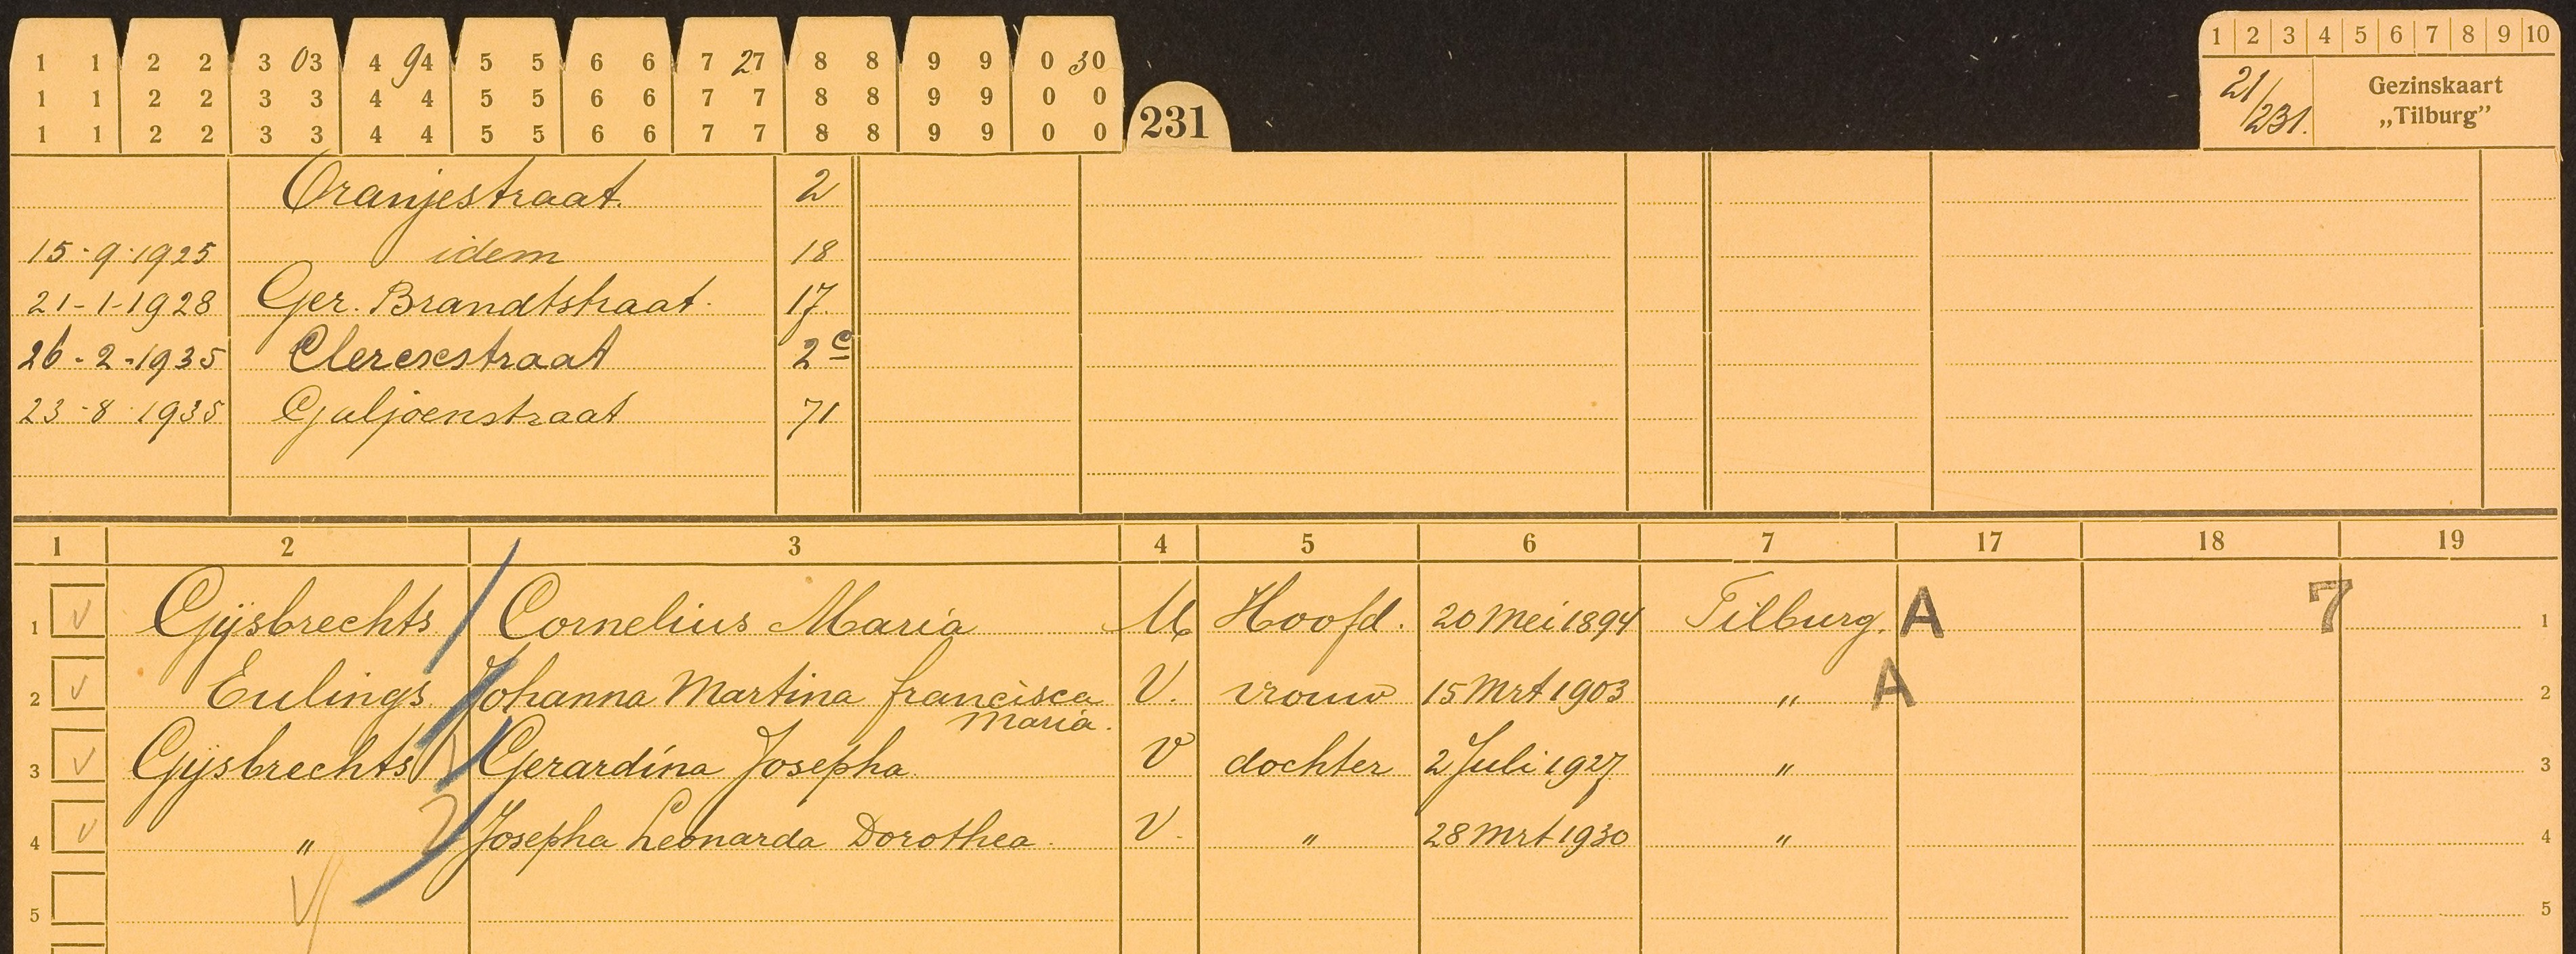 1 1 2 2 3 03 4 94 5 5 6 6 7 27 8 8 9 9 0 30
1 1 2 2 3 3 4 4 5 5 6 6 7 7 8 8 9 9 0 0
1 1 2 2 3 3 4 4 5 5 6 6 7 7 8 8 9 9 0 0
231
1 2 3 4 5 6 7 8 9 10
21/231.
Gezinskaart
„Tilburg”
Oranjestraat. 2
15-9-1925 idem 18
21-1-1928 Ger. Brandtstraat. 17.
26-2-1935 Clercxstraat 2c
23-8-1935 Galjoenstraat 71
1 2 3 4 5 6 7 17 18 19
1 V Gijsbrechts Cornelius Maria M Hoofd. 20 Mei 1894 Tilburg. A 7 1
2 V Eulings. Johanna Martina francisca V. vrouw 15 Mrt 1903 „ A 2
Maria.
3 V Gijsbrechts 1 Gerardina Josepha. V dochter 2 Juli 1927 „ 3
4 V „ 2 Josepha Leonarda Dorothea. V. „ 28 Mrt 1930 „ 4
5 5